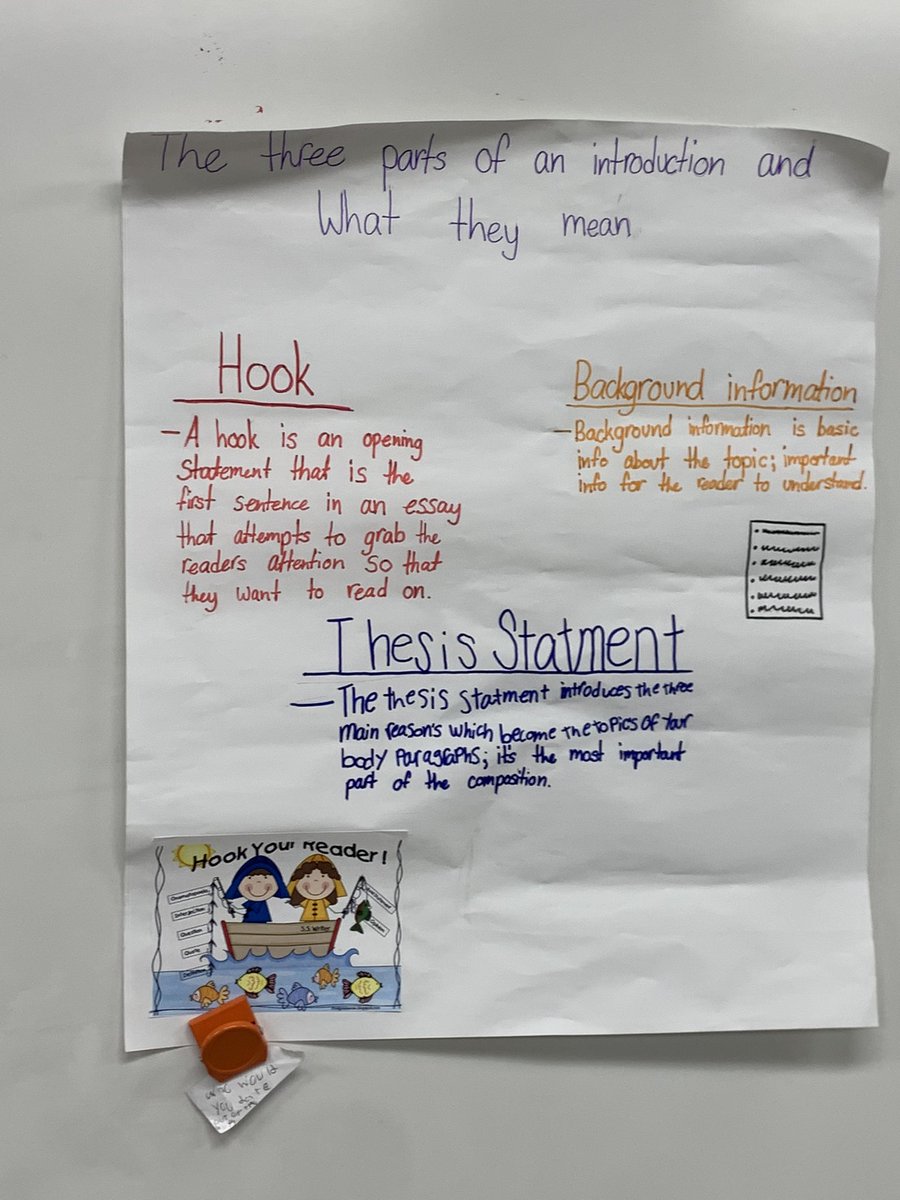 The three parts of an introduction and
What they mean
Hook
– A hook is an opening
Statement that is the
first sentence in an essay
that attempts to grab the
readers attention so that
they want to read on.
Background information
– Background information is basic
info about the topic; important
info for the reader to understand.
Thesis Statment
– The thesis statment introduces the three
main reason's which become the topics of your
body paragraphs; it's the most important
part of the composition.
Hook Your Reader!
Onomatopoeia
Interjection
Question
Quote
Definition
Opinion
S.S. Writer
would
you